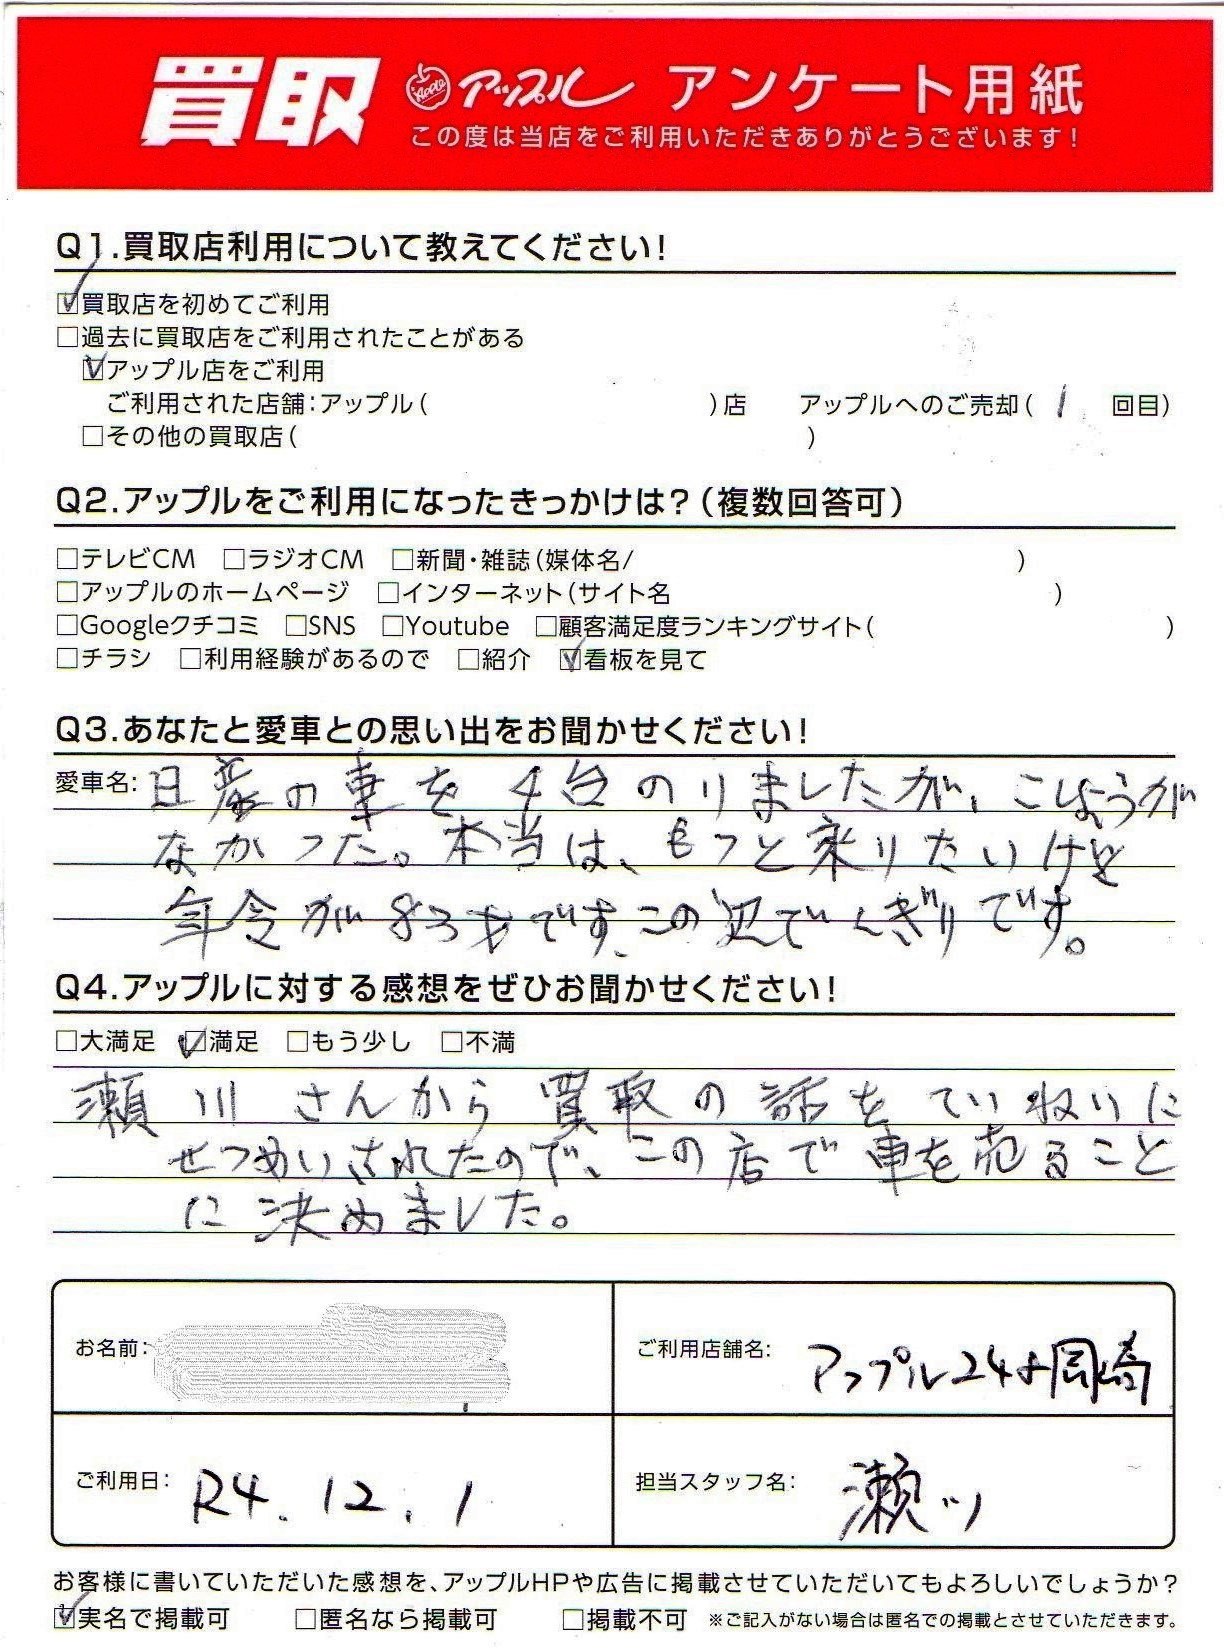 買取 Apple アップル アンケート用紙
この度は当店をご利用いただきありがとうございます!
Q1.買取店利用について教えてください!
☑買取店を初めてご利用
□過去に買取店をご利用されたことがある
☑アップル店をご利用
ご利用された店舗:アップル( )店 アップルへのご売却( 1 回目)
□その他の買取店( )
Q2.アップルをご利用になったきっかけは?(複数回答可)
□テレビCM □ラジオCM □新聞・雑誌(媒体名/ )
□アップルのホームページ □インターネット(サイト名 )
□Googleクチコミ □SNS □Youtube □顧客満足度ランキングサイト( )
□チラシ □利用経験があるので □紹介 ☑看板を見て
Q3.あなたと愛車との思い出をお聞かせください!
愛車名: 日産の車を4台のりましたが、こしょうが
なかった。本当は、もっと乗りたいけど
年令が83才です、この辺でくぎりです。
Q4.アップルに対する感想をぜひお聞かせください!
□大満足 ☑満足 □もう少し □不満
瀬川さんから買取の話をていねいに
せつめいされたので、この店で車を売ること
に決めました。
お名前:
ご利用店舗名: アップル24岡崎
ご利用日: R4.12.1
担当スタッフ名: 瀬川
お客様に書いていただいた感想を、アップルHPや広告に掲載させていただいてもよろしいでしょうか?
☑実名で掲載可 □匿名なら掲載可 □掲載不可 ※ご記入がない場合は匿名での掲載とさせていただきます。